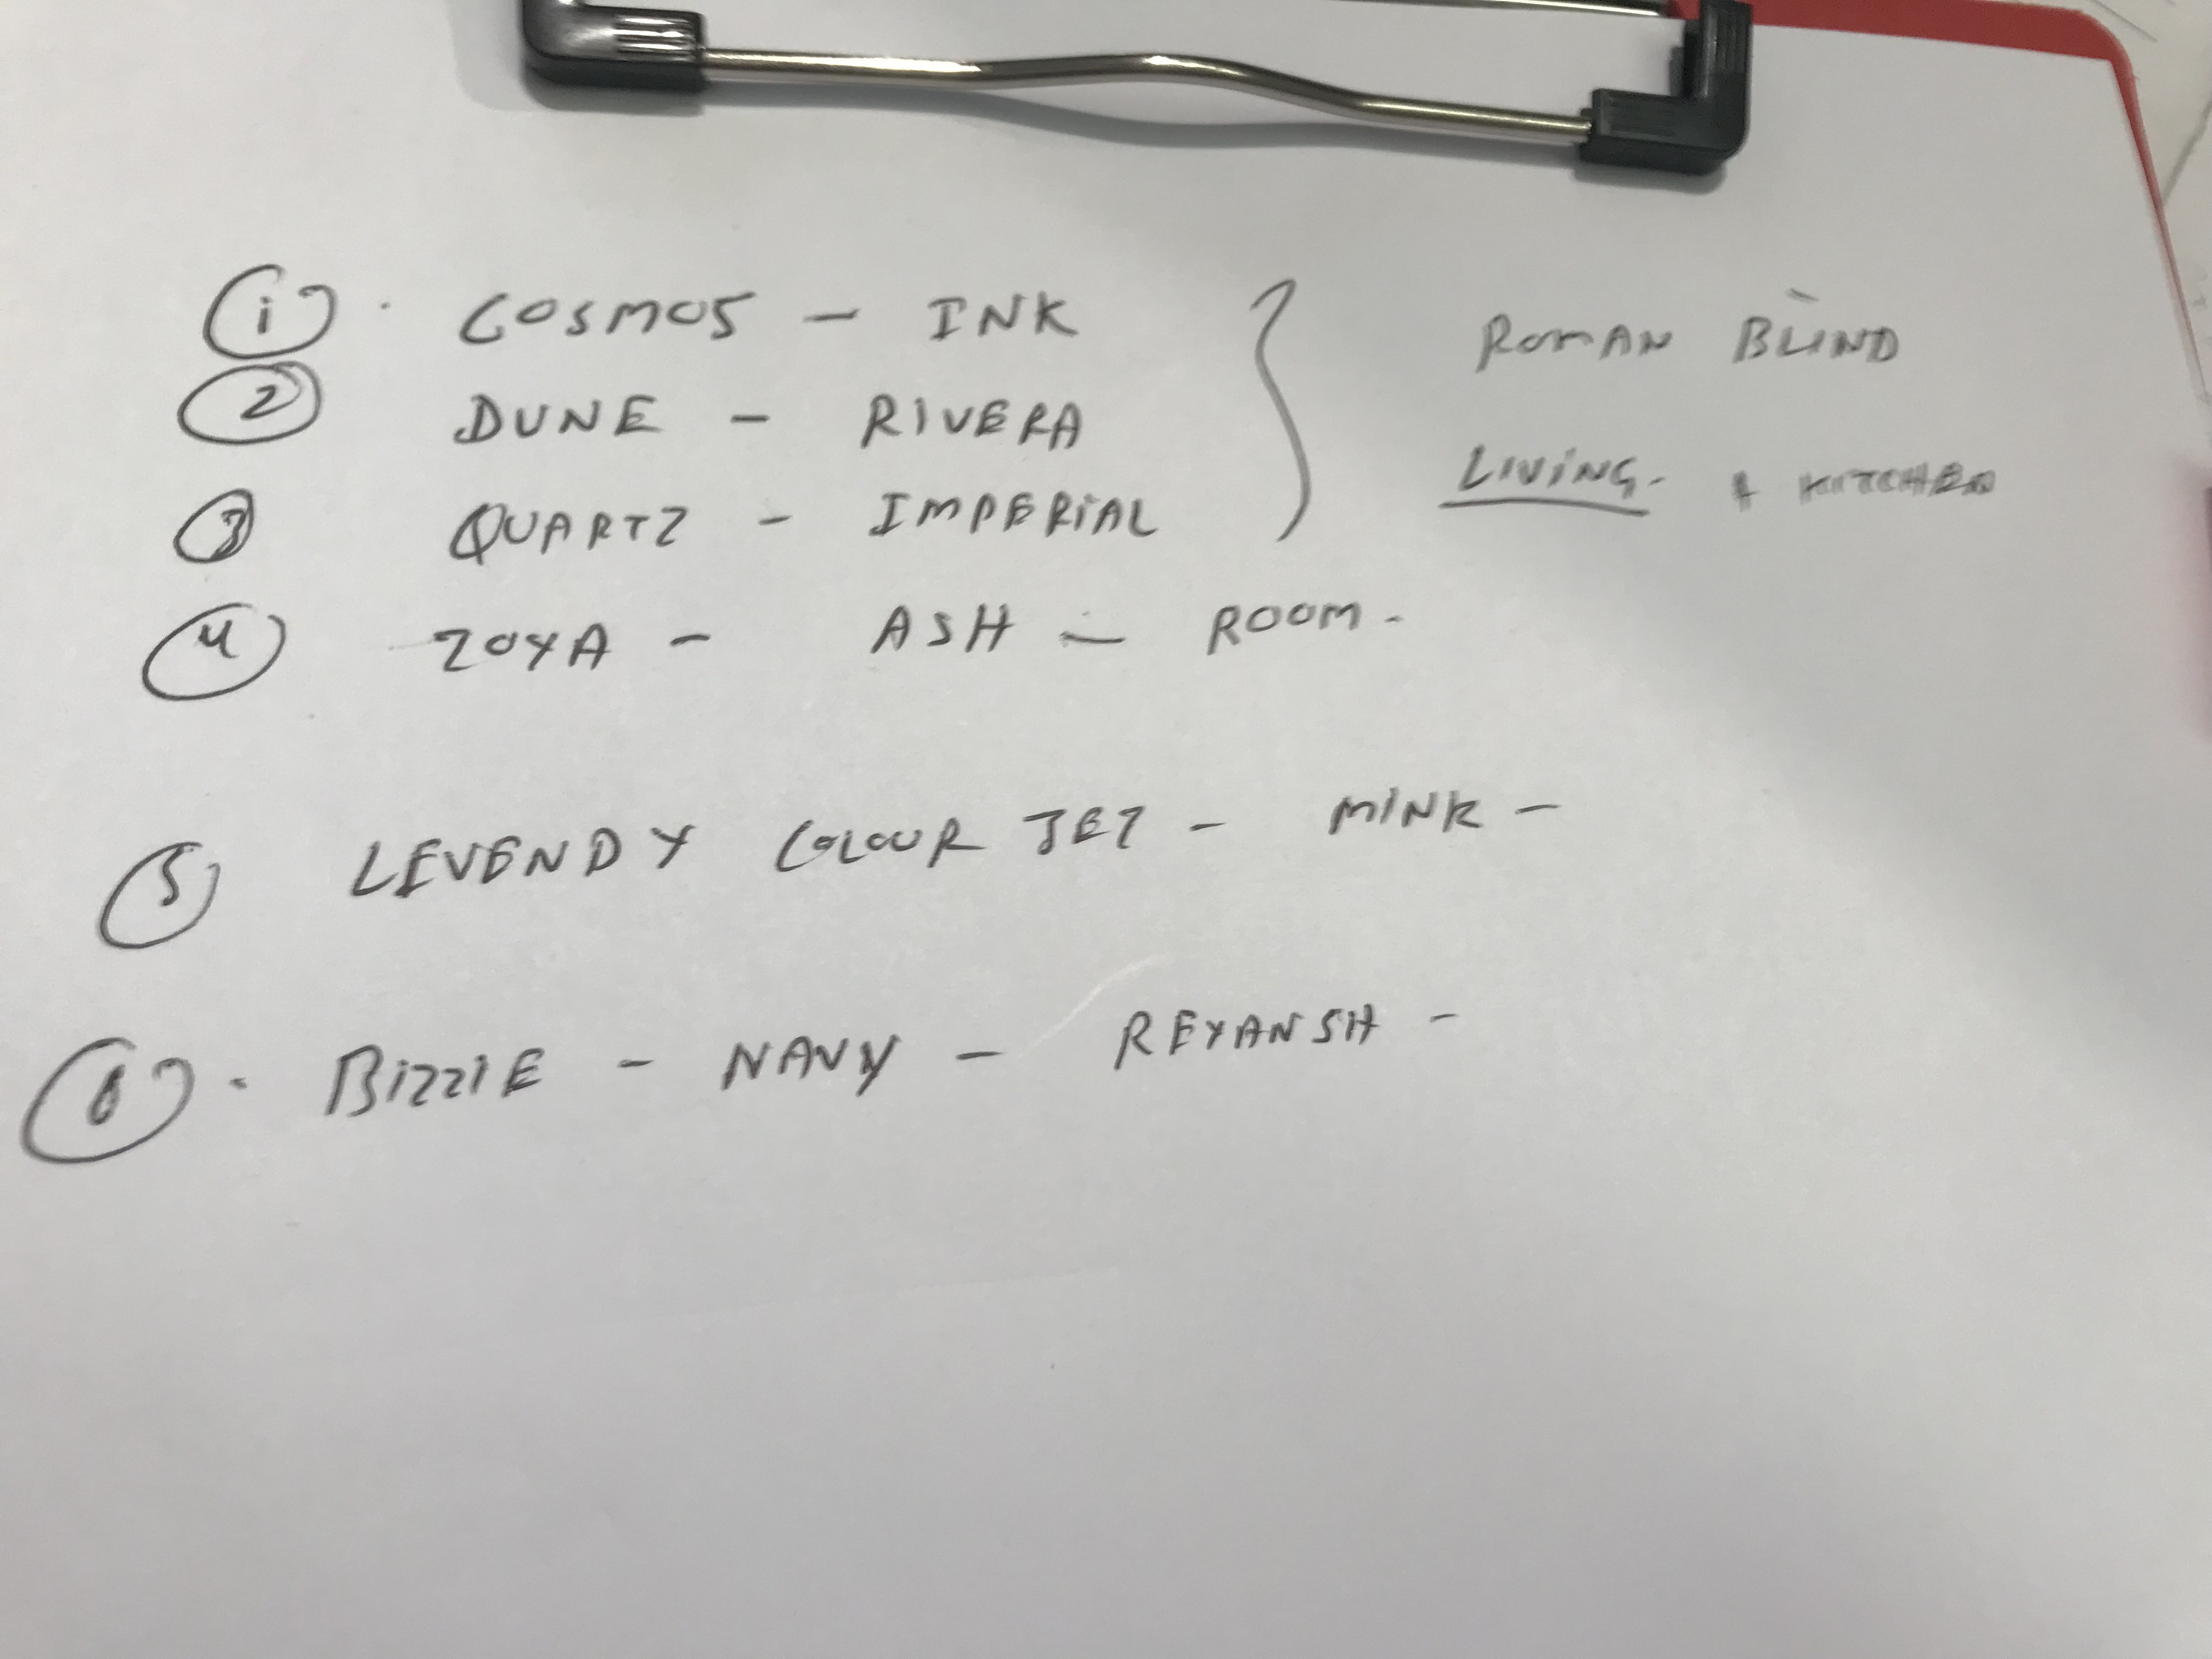 1. COSMOS - INK
2 DUNE - RIVERA
3 QUARTZ - IMPERIAL
ROMAN BLIND
LIVING. + KITCHEN
4 ZOYA - ASH - ROOM.
5 LEVENDY COLOUR JET - MINK -
6. BIZZIE - NAVY - REYANSH -